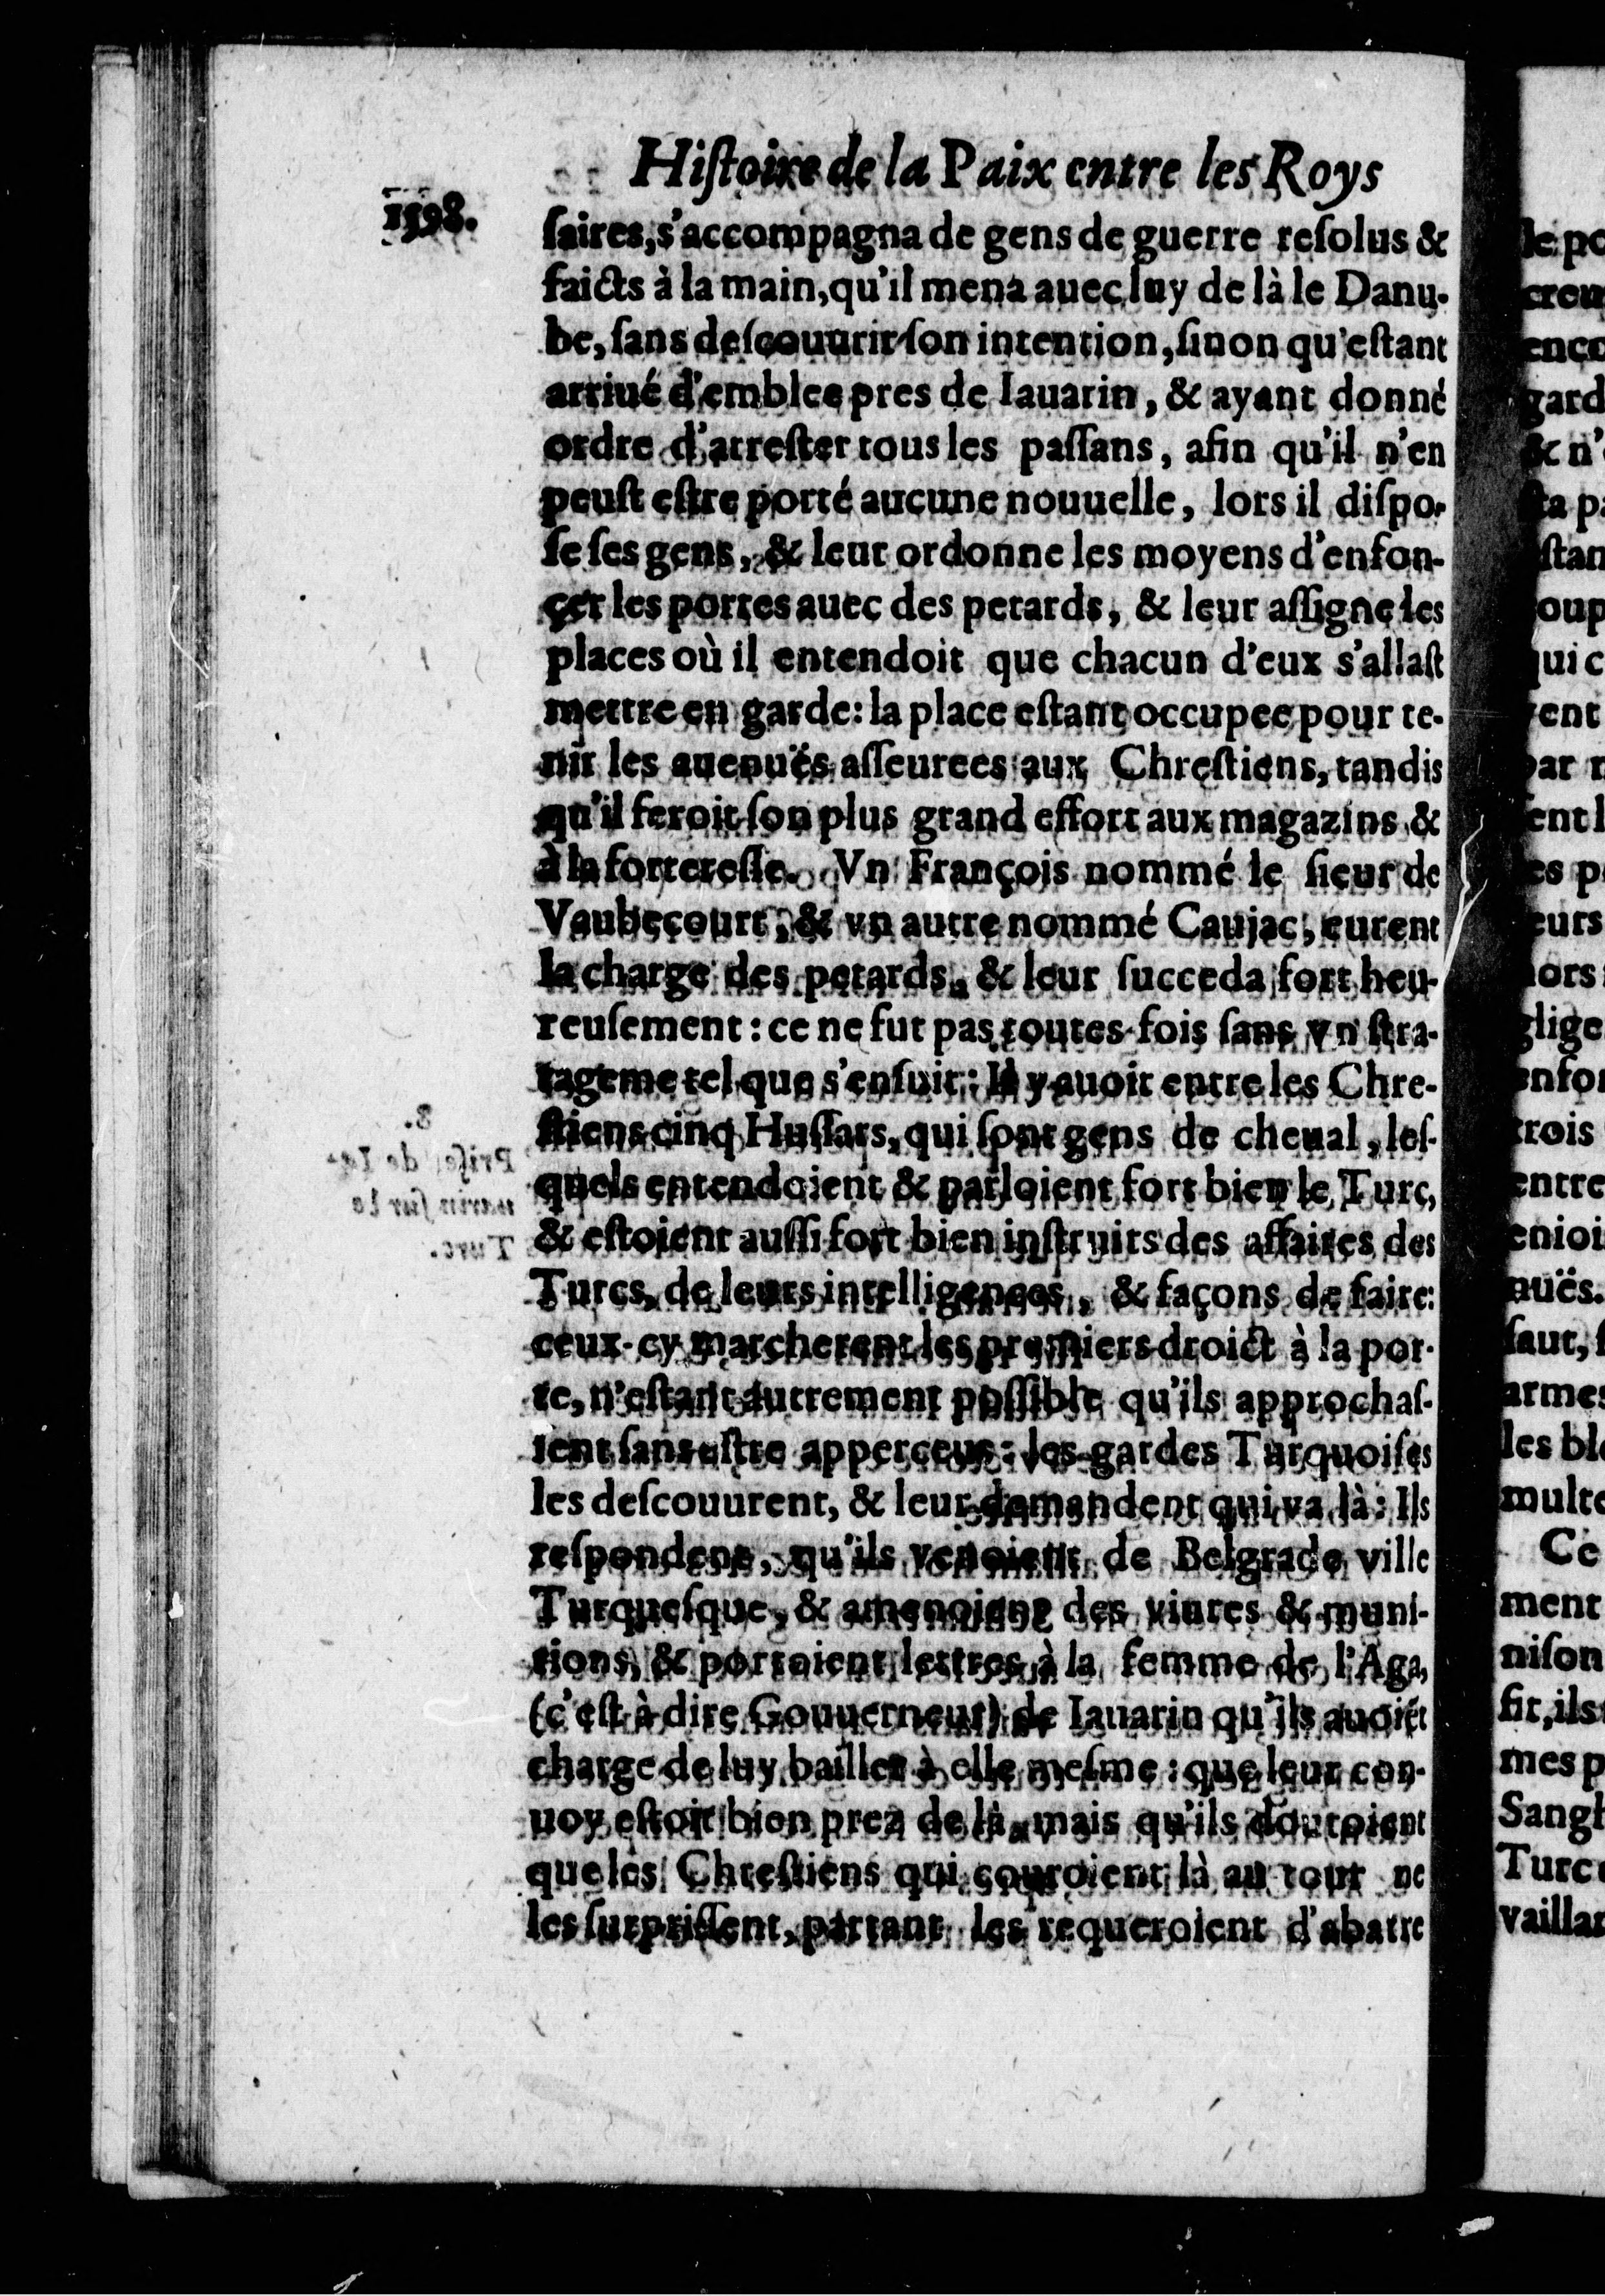 Hiſtoire de la Paix entre les Roys
1598.
ſaires, s'accompagna de gens de guerre reſolus &
faicts à la main, qu'il mena auec luy de là le Danu-
be, ſans deſcouurir ſon intention, ſinon qu'eſtant
arriué d'emblee pres de Iauarin, & ayant donné
ordre d'arreſter tous les paſſans, afin qu'il n'en
peuſt eſtre porté aucune nouuelle, lors il diſpo-
ſe ſes gens, & leur ordonne les moyens d'enfon-
çer les portes auec des petards, & leur aſſigne les
places où il entendoit que chacun d'eux s'allaſt
mettre en garde: la place eſtant occupee pour te-
nir les auenuës aſſeurees aux Chreſtiens, tandis
qu'il feroit ſon plus grand effort aux magazins &
à la fortereſſe. Vn François nommé le ſieur de
Vaubecourt, & vn autre nommé Caujac, eurent
la charge des petards, & leur ſucceda fort heu-
reuſement: ce ne fut pas toutes-fois ſans vn ſtra-
tageme tel que s'enſuit: Il y auoit entre les Chre-
ſtiens cinq Huſſars, qui ſont gens de cheual, leſ-
quels entendoient & parloient fort bien le Turc,
& eſtoient auſſi fort bien inſtruits des affaires des
Turcs, de leurs intelligences, & façons de faire:
ceux-cy marcherent les premiers droict à la por-
te, n'eſtant autrement poſſible qu'ils approchaſ-
ſent ſans eſtre apperceus: les gardes Turquoiſes
les deſcouurent, & leur demandent qui va là: Ils
reſpondent, qu'ils venoient de Belgrade ville
Turqueſque, & amenoient des viures & muni-
tions, & portoient lettres à la femme de l'Aga,
(c'eſt à dire Gouuerneur) de Iauarin qu'ils auoiẽt
charge de luy bailler à elle meſme: que leur con-
uoy eſtoit bien prez de là, mais qu'ils doutoient
que les Chreſtiens qui couroient là au tour ne
les ſurpriſſent, partant les requeroient d'abatre